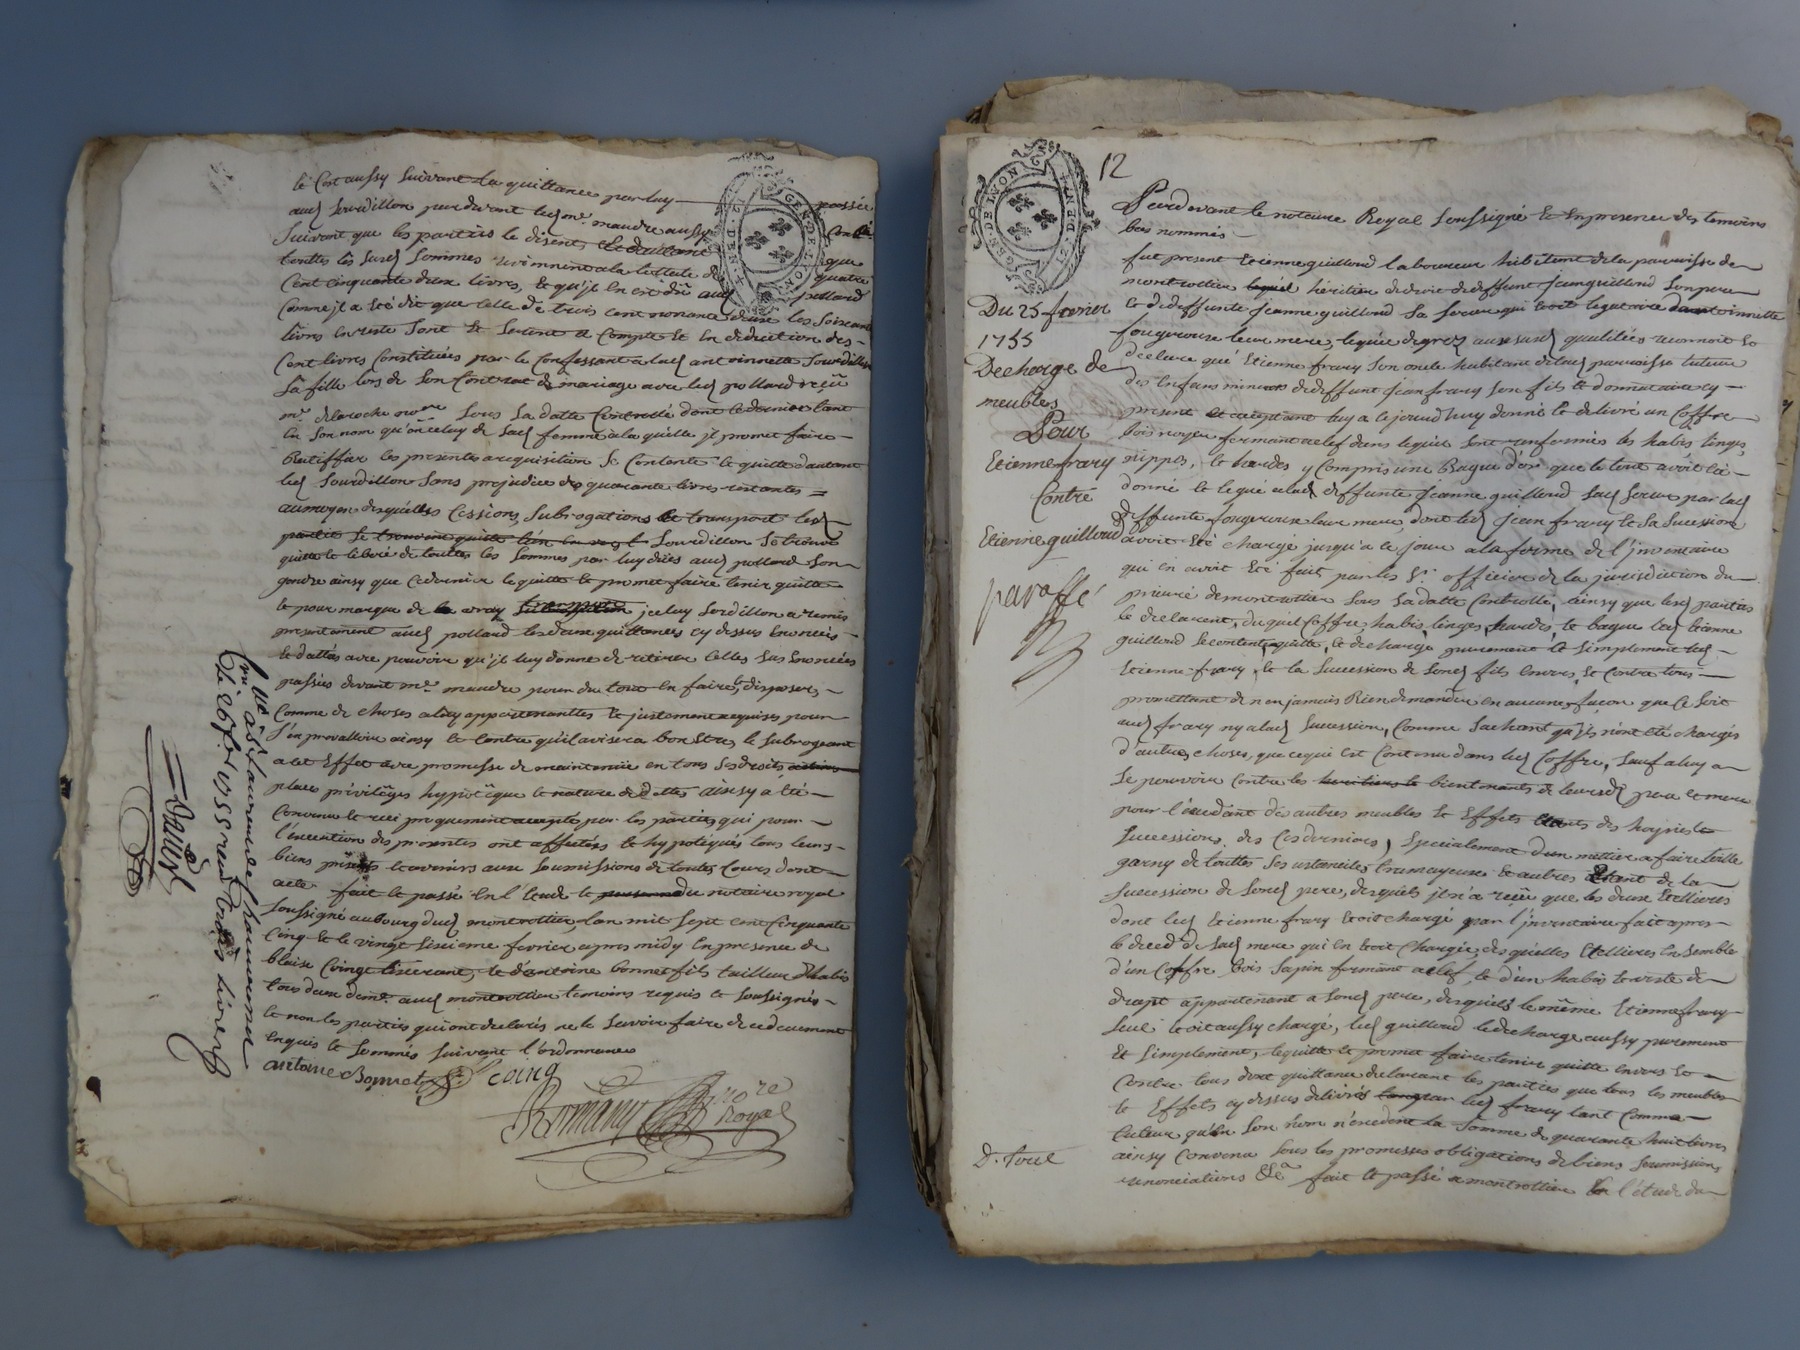 le Cort aussy Suivant La quittance par luy passée
aud Sourdillon pardevant led me. maudre aussy Contlé.
Suivant que les parties le disent
touttes les Susd Sommes reviennent a la totalle de quatre
Cent cinquante deux livres, et qu'il en est dû aud pollard
Comme jl a eté dit que celle de trois cent nonante deux les Soixante
livres en reste Sont et Seront a Compte et en déduction des
Cent livres Constituées par le Confessant a lad antoinette Sourdillon
Sa fille lors de Son Contrat de mariage avec led pollard reçû
me. delaroche Sous Sa datte Controllé dont le dernier tant
en Son nom qu'en celuy de Sad femme a la quelle jl promet faire
Ratiffier les presentes acquisition Se Contente et quitte d'autant
led Sourdillon Sans prejudice des quarante livres restantes =
au moyen desquelles Cessions, Subrogations et transport
Sourdillon Se trouve
quitte et liberé de touttes les Sommes par luy düés aud pollard Son
gendre ainsy que Ce dernier le quitte et promet faire tenir quitte
et pour marque de vray jceluy Sordillon a remis
presentement aud pollard les deux quittances cy dessus Enoncées
et dattés avec pouvoir qu'jl luy donne de retirer celles Sus Enoncées
passées devant me. maudre pour du tout en faire et disposer
Comme de choses a luy appartenantes et justement acquises pour
S'en prevalloir ainsy et Contre qu'il avisera bon Etre, le Subrogeant
a cet Effet avec promesse de maintenüe en tous Ses droits, action
place priviléges hypotéque et nature de dettes ainsy a eté
Convenu et reciproquement accepté par les parties, qui pour
l'éxécution des presentes ont affectés et hypotéqués tous leurs
biens présents et avenirs aux Soumissions de toutes Cours dont
acte fait et passé En l'étude du notaire royal
Soussigné au bourg dud montrottier, l'an mil Sept cent Cinquante
Cinq et le vingt Sixieme fevrier apres midy En presence de
blaise Coing tisserant, et d'antoine bonnet fils tailleur d'habis
tous deux demt. aud montrottier temoins requis et Soussignés
et non les parties qui ont declarés ne le Scavoir faire de ce deuement
Enquis et Sommés Suivant l'ordonnance
antoine Bonnet fils Coing
Romany nore
Royal
a St Laurent de Chamousset
Le 26 fer 1755 reçu trois livres
David
12
Du 25 fevrier
1755
Decharge de
meubles
Pour
Etienne frary
Contre
Etienne guilloud
paraffé
D. Toul
Pardevant le notaire Royal Soussigné Et En presence des temoins
bas nommés
fut present Etienne guilloud laboureur habitant de la paroisse de
montrottier lequel héritier de droit de deffunt Jean guilloud Son pere
et de deffunte Jeanne guilloud Sa Soeur qui etoit legataire d'antoinnette
fougerouse leur mere, lequel de gré aux susd qualitées reconnoit et
declare que Etienne frary Son oncle habitant de lad paroisse tuteur
des Enfans mineurs de deffunt Jean frary Son fils et donnataire cy
present et acceptant luy a le jourd'huy donné et délivré un Coffre
bois noyer fermant a clef dans lequel Sont renfermés les habis linges
nippes, et hardes y Compris une Bague d'or que le tout avoit eté
donné et legué a lad deffunte Jeanne guilloud Sad Soeur par lad
deffunte fougerouse leur mere, dont led Jean frary et Sa Sucession
avoit eté chargé jusqu'a ce jour a la forme de l'jnventaire
qui en avoit eté fait par les Srs officier de la jurisdiction du
prieuré de montrottier Sous Sa datte Controllé, ainsy que lesd parties
le declarent, duquel Coffre, habis, linges, hardes, et bague led Etienne
guilloud Se contente, quitte, et decharge purement et Simplement led
Etienne frary, et la Succession de Sond fils Envers, et Contre tous
promettant de n'en jamais Rien demander en aucune façon que Ce Soit
aud frary ny a lad Succession, Comme Sachant qu'jls n'ont eté chargés
d'autres choses, que ce qui est Contenu dans led Coffre, Sauf a luy a
Se pourvoir Contre les heritiers et bientenants de leursd pere et mere
pour l'éxcédant des autres meubles et Effets des hoiries
Succession des Ces derniers, Specialement d'un mettier a faire toille
garny de touttes Ses ustancilles, tramayeuse et autres de la
Succession de Sond pere, desquels jl n'a reçu que les deux Etellieres
dont led Etienne frary Etoit chargé par l'jnventaire fait apres
le deced de Sad mere qui En Etoit Chargée, desquelles Etellieres Ensemble
d'un Coffre bois Sapin fermant a clef, et d'un habis et veste de
drapt appartenant a Sond pere, desquels le même Etienne frary
Seul etoit aussy chargé, led guilloud le decharge aussy purement
Et Simplement, le quitte et promet faire tenir quitte envers et
Contre tous dont quittance declarant les parties que tous les meubles
et Effets cy dessus delivrés par led frary tant Comme
tuteur qu'En Son nom n'éxcedent la Somme de quarante huit livres
ainsy Convenu Sous les promesses obligations de biens Soumission
renonciations &c.a fait et passé a montrottier En l'étude du